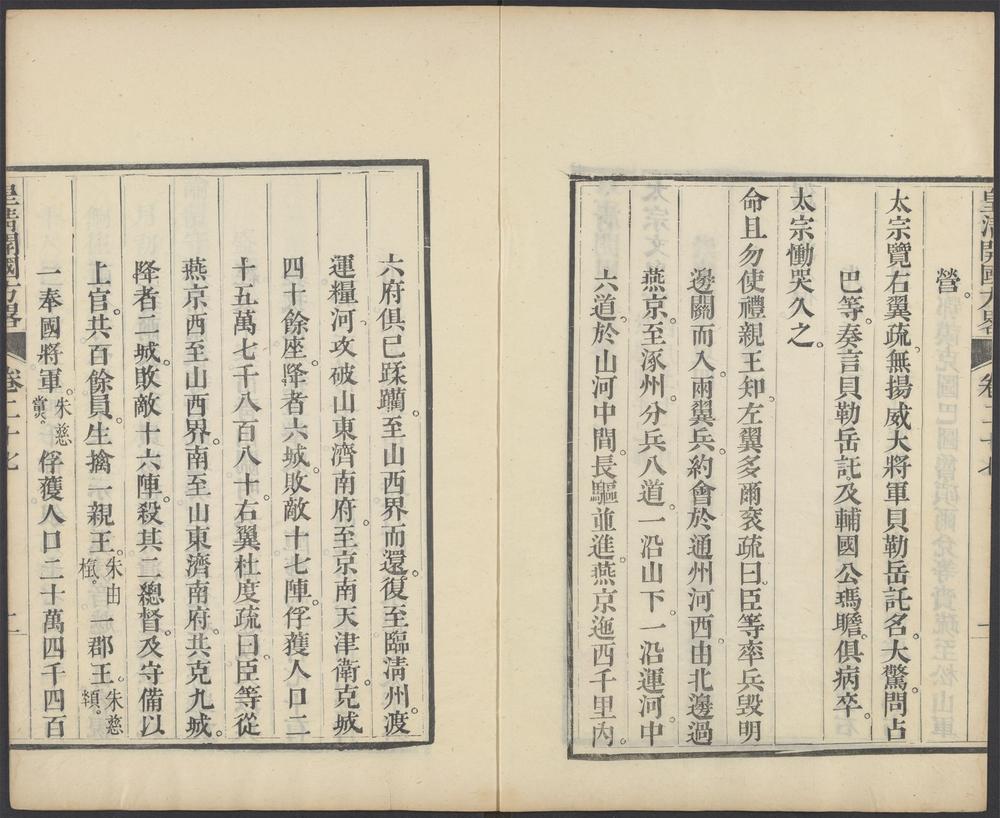 皇清開國方畧 卷二十七 一
營。
太宗覽右翼疏。無揚威大將軍貝勒岳託名。大驚。問占
巴等。奏言貝勒岳託。及輔國公瑪瞻。俱病卒。
太宗慟哭久之。
命且勿使禮親王知。左翼多爾衮疏曰。臣等率兵毀明
邊關而入。兩翼兵。約會於通州河西。由北邊過
燕京。至涿州。分兵八道。一沿山下。一沿運河。中
六道。於山河中間。長驅並進。燕京迤西千里內。
六府俱已蹂躪。至山西界而還。復至臨清州。渡
運糧河。攻破山東濟南府。至京南天津衛。克城
四十餘座。降者六城。敗敵十七陣。俘獲人口二
十五萬七千八百八十。右翼杜度疏曰。臣等從
燕京西至山西界。南至山東濟南府。共克九城。
降者二城。敗敵十六陣。殺其二總督。及守備以
上官。共百餘員。生擒一親王。朱由𣚴。一郡王。朱慈䫉。
一奉國將軍。朱慈黨。俘獲人口二十萬四千四百
皇清開國方畧 卷二十七